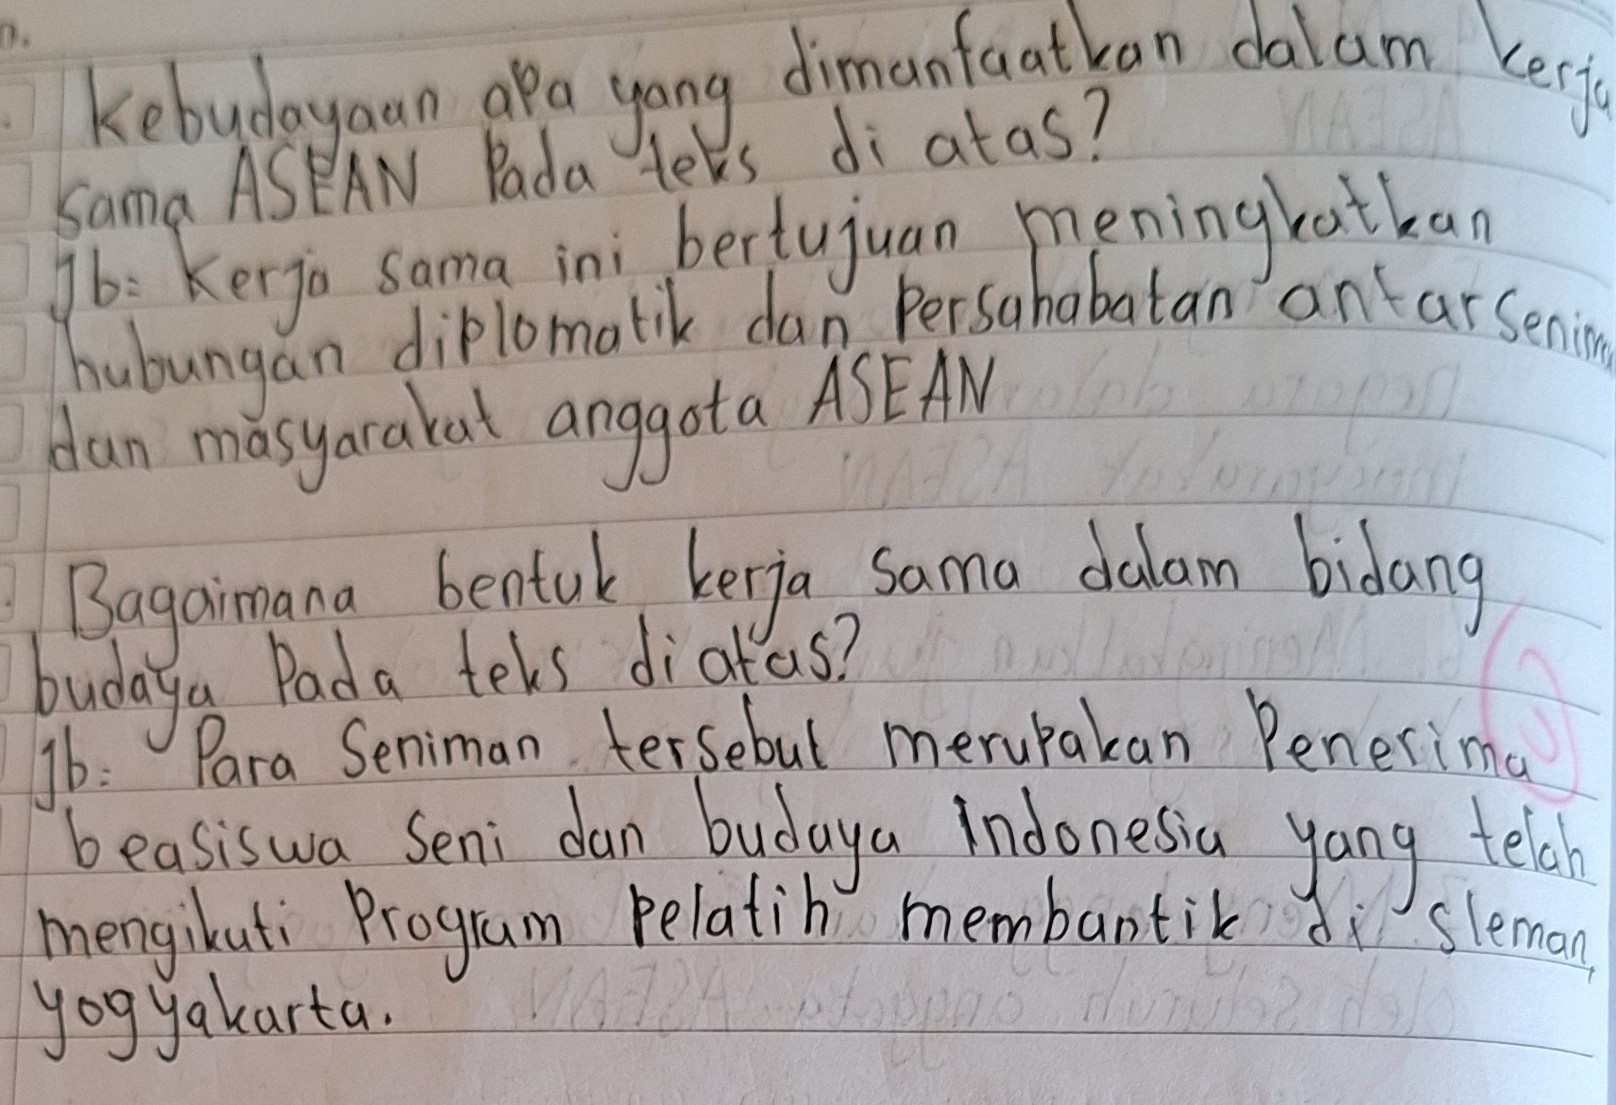 Kebudayaan apa yang dimanfaatkan dalam kerja
sama ASEAN Pada teks di atas?
Jb: Kerja sama ini bertujuan meningkatkan
hubungan diplomatik dan Persahabatan antarsenim
dan masyarakat anggota ASEAN
Bagaimana bentuk kerja sama dalam bidang
budaya Pada teks diatas?
Jb: Para Seniman tersebut merupakan Penerima
beasiswa Seni dan budaya Indonesia yang telah
mengikuti Program pelatih membantik di sleman,
yogyakarta.